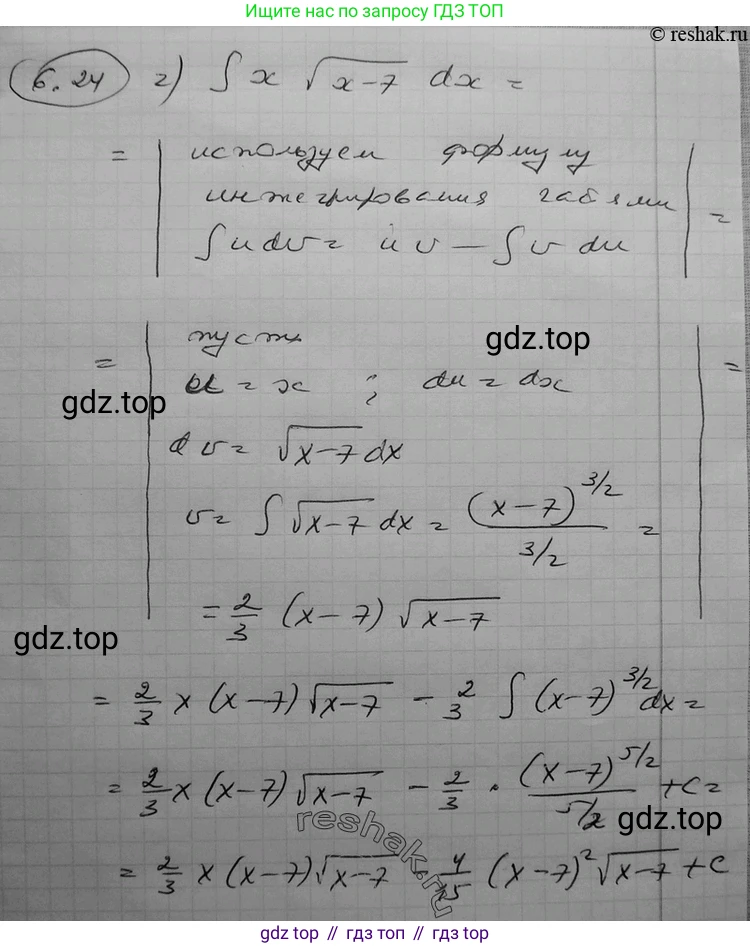 Ищите нас по запросу ГДЗ ТОП
© reshak.ru
6.24 г) ∫ x √(x-7) dx =
= | используем формулу
интегрирования частями
∫ u dv = u v - ∫ v du | =
= | пусть
u = x ; du = dx | =
gdz.top
gdz.top
dv = √(x-7) dx
v = ∫ √(x-7) dx = (x-7)^3/2 / 3/2 =
= 2/3 (x-7) √(x-7)
gdz.top
= 2/3 x (x-7) √(x-7) - 2/3 ∫ (x-7)^3/2 dx =
= 2/3 x (x-7) √(x-7) - 2/3 · (x-7)^5/2 / 5/2 + c =
gdz.top
reshak.ru
= 2/3 x (x-7) √(x-7) - 4/15 (x-7)^2 √(x-7) + c
gdz top // гдз топ // gdz.top